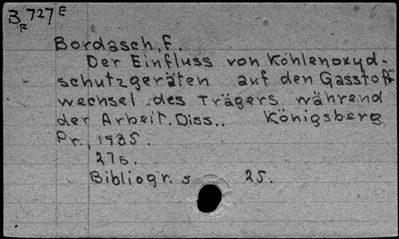 B 727 E
F
Bordasch, F.
Der Einfluss von Kohlenoxyd-
schutzgeräten auf den Gasstoff
wechsel des Trägers während
der Arbeit. Diss.. Königsberg
Pr., 1935.
27s.
Bibliogr. s 25.